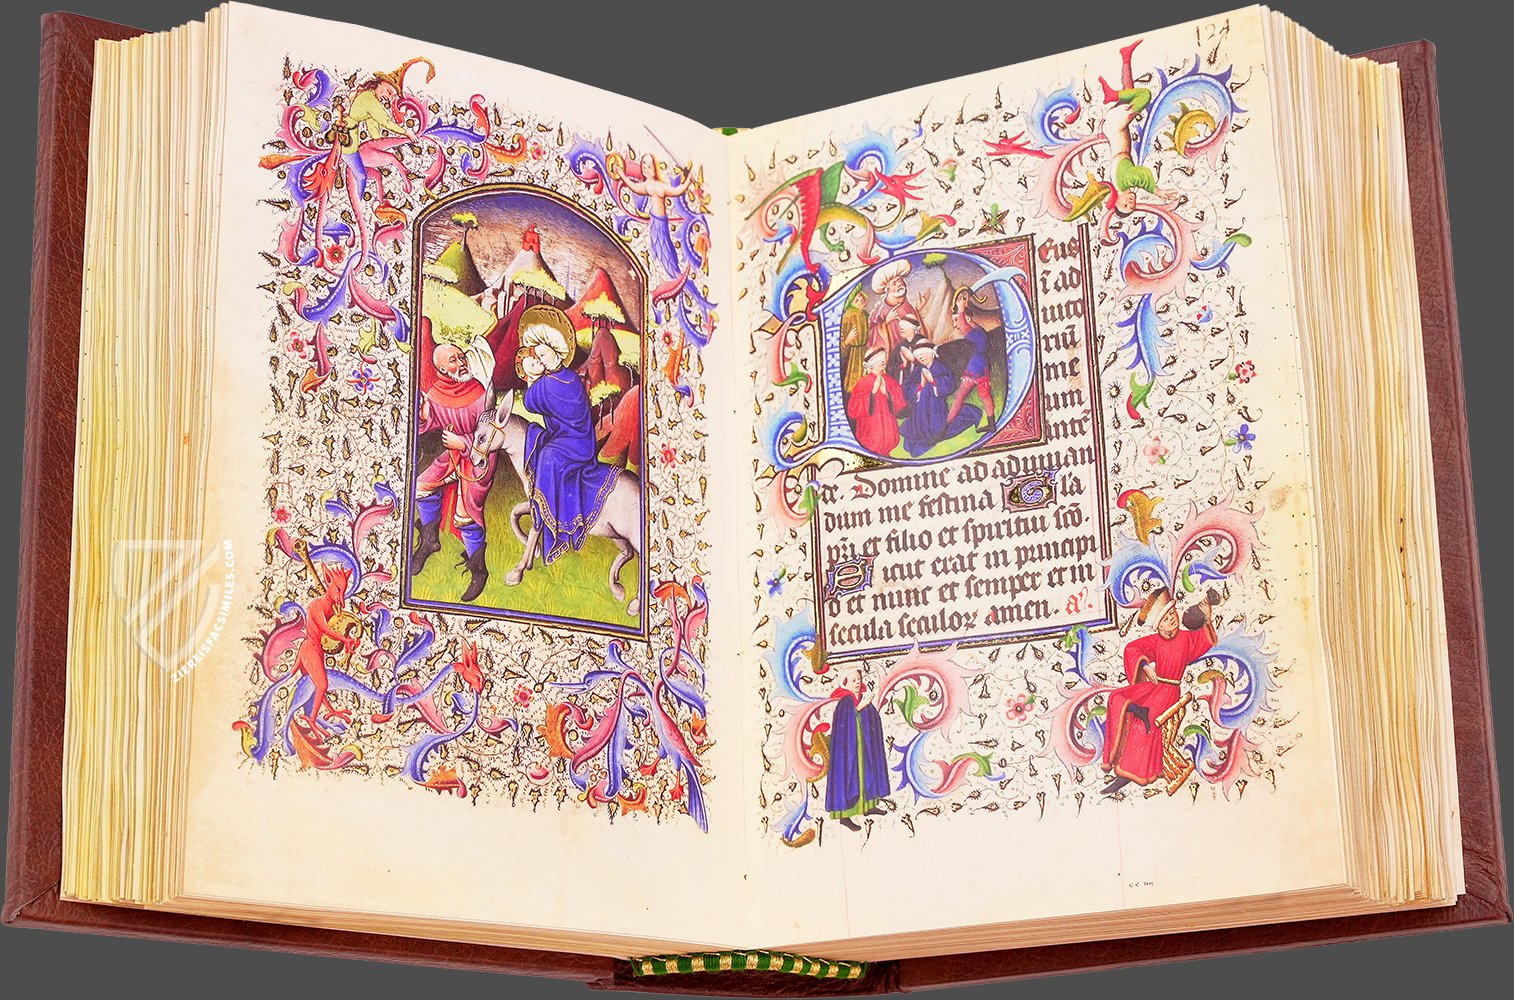 124
Deus
ī ad
iuto
riū
me
um
intē
de. Domine ad adiuuan
dum me festina Gla
pr̄i et filio et spiritui sc̄o.
Sicut erat in principi
o et nunc et semper et in
secula seculoꝝ amen. a͞.
ZIEREIS FACSIMILES.COM